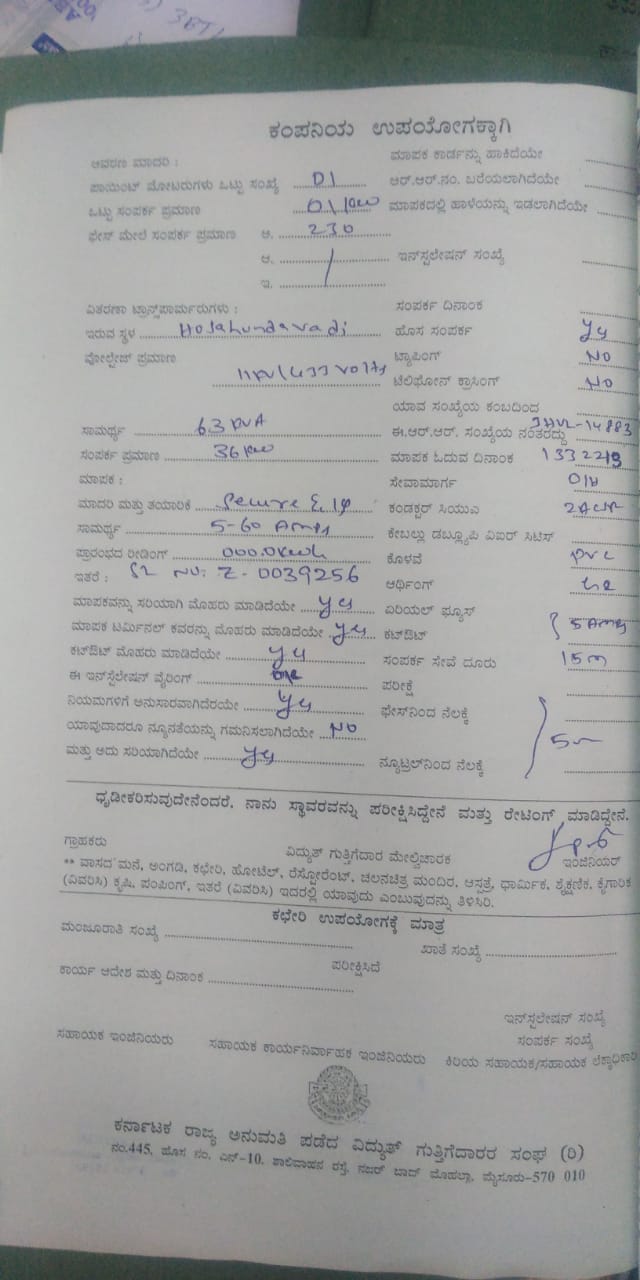 ಕಂಪನಿಯ ಉಪಯೋಗಕ್ಕಾಗಿ
ಆವರಣ ಮಾದರಿ : ಮಾಪಕ ಕಾರ್ಡನ್ನು ಹಾಕಿದೆಯೇ
ಪಾಯಿಂಟ್ ಮೋಟರುಗಳು ಒಟ್ಟು ಸಂಖ್ಯೆ 01 ಆರ್.ಆರ್.ನಂ. ಬರೆಯಲಾಗಿದೆಯೇ
ಒಟ್ಟು ಸಂಪರ್ಕ ಪ್ರಮಾಣ 01 kw ಮಾಪಕದಲ್ಲಿ ಹಾಳೆಯನ್ನು ಇಡಲಾಗಿದೆಯೇ
ಫೇಸ್ ಮೇಲೆ ಸಂಪರ್ಕ ಪ್ರಮಾಣ ಅ. 230
ಆ. ಇನ್‌ಸ್ಟಲೇಷನ್ ಸಂಖ್ಯೆ
ಇ.
ವಿತರಣಾ ಟ್ರಾನ್ಸ್‌ಪಾರ್ಮರುಗಳು : ಸಂಪರ್ಕ ದಿನಾಂಕ
ಇರುವ ಸ್ಥಳ Hosahundavadi ಹೊಸ ಸಂಪರ್ಕ yes
ವೋಲ್ಟೇಜ್ ಪ್ರಮಾಣ ಟ್ಯಾಪಿಂಗ್ NO
11KV/433 volts ಟೆಲಿಫೋನ್ ಕ್ರಾಸಿಂಗ್ NO
ಯಾವ ಸಂಖ್ಯೆಯ ಕಂಬದಿಂದ
ಸಾಮರ್ಥ್ಯ 63 KVA ಈ.ಆರ್.ಆರ್. ಸಂಖ್ಯೆಯ ನಂತರದ್ದು -14883
ಸಂಪರ್ಕ ಪ್ರಮಾಣ 36 kw ಮಾಪಕ ಓದುವ ದಿನಾಂಕ
ಮಾಪಕ : ಸೇವಾಮಾರ್ಗ O/H
ಮಾದರಿ ಮತ್ತು ತಯಾರಿಕೆ Secure ಕಂಡಕ್ಟರ್ ಸಿಯುಎ
ಸಾಮರ್ಥ್ಯ 5-60 Amps ಕೇಬಲ್ಲು ಡಬ್ಲ್ಯೂಪಿ ವಿಐರ್ ಸಿಟಿಸ್
ಪ್ರಾರಂಭದ ರೀಡಿಂಗ್ 000.0 kwh ಕೊಳವೆ PVC
ಇತರೆ : Sl NO: Z-0039256 ಆರ್ಥಿಂಗ್
ಮಾಪಕವನ್ನು ಸರಿಯಾಗಿ ಮೊಹರು ಮಾಡಿದೆಯೇ yes ಏರಿಯಲ್ ಫ್ಯೂಸ್
ಮಾಪಕ ಟರ್ಮಿನಲ್ ಕವರನ್ನು ಮೊಹರು ಮಾಡಿದೆಯೇ yes ಕಟ್‌ಔಟ್ 5 Amps
ಕಟ್‌ಔಟ್ ಮೊಹರು ಮಾಡಿದೆಯೇ yes ಸಂಪರ್ಕ ಸೇವೆ ದೂರು 15m
ಈ ಇನ್‌ಸ್ಟೆಲೇಷನ್ ವೈರಿಂಗ್ ಪರೀಕ್ಷೆ
ನಿಯಮಗಳಿಗೆ ಅನುಸಾರವಾಗಿದೆರೆಯೇ yes ಫೇಸ್‌ನಿಂದ ನೆಲಕ್ಕೆ
ಯಾವುದಾದರೂ ನ್ಯೂನತೆಯನ್ನು ಗಮನಿಸಲಾಗಿದೆಯೇ NO
ಮತ್ತು ಅದು ಸರಿಯಾಗಿದೆಯೇ yes ನ್ಯೂಟ್ರಲ್‌ನಿಂದ ನೆಲಕ್ಕೆ
ಧೃಡೀಕರಿಸುವುದೇನೆಂದರೆ, ನಾನು ಸ್ಥಾವರವನ್ನು ಪರೀಕ್ಷಿಸಿದ್ದೇನೆ ಮತ್ತು ರೇಟಿಂಗ್ ಮಾಡಿದ್ದೇನೆ.
ಗ್ರಾಹಕರು ವಿದ್ಯುತ್ ಗುತ್ತಿಗೆದಾರ ಮೇಲ್ವಿಚಾರಕ ಇಂಜಿನಿಯರ್
** ವಾಸದ ಮನೆ, ಅಂಗಡಿ, ಕಛೇರಿ, ಹೋಟೆಲ್, ರೆಸ್ಟೋರೆಂಟ್, ಚಲನಚಿತ್ರ ಮಂದಿರ, ಆಸ್ಪತ್ರೆ, ಧಾರ್ಮಿಕ, ಶೈಕ್ಷಣಿಕ, ಕೈಗಾರಿಕ
(ವಿವರಿಸಿ) ಕೃಷಿ, ಪಂಪಿಂಗ್, ಇತರೆ (ವಿವರಿಸಿ) ಇದರಲ್ಲಿ ಯಾವುದು ಎಂಬುವುದನ್ನು ತಿಳಿಸಿರಿ.
ಕಛೇರಿ ಉಪಯೋಗಕ್ಕೆ ಮಾತ್ರ
ಮಂಜೂರಾತಿ ಸಂಖ್ಯೆ ಖಾತೆ ಸಂಖ್ಯೆ
ಪರೀಕ್ಷಿಸಿದೆ
ಕಾರ್ಯ ಆದೇಶ ಮತ್ತು ದಿನಾಂಕ
ಇನ್‌ಸ್ಟಲೇಷನ್ ಸಂಖ್ಯೆ
ಸಂಪರ್ಕ ಸಂಖ್ಯೆ
ಸಹಾಯಕ ಇಂಜಿನಿಯರು ಸಹಾಯಕ ಕಾರ್ಯನಿರ್ವಾಹಕ ಇಂಜಿನಿಯರು ಕಿರಿಯ ಸಹಾಯಕ/ಸಹಾಯಕ ಲೆಕ್ಕಾಧಿಕಾರಿ
ಕರ್ನಾಟಕ ರಾಜ್ಯ ಅನುಮತಿ ಪಡೆದ ವಿದ್ಯುತ್ ಗುತ್ತಿಗೆದಾರರ ಸಂಘ (ರಿ)
ನಂ.445, ಹೊಸ ನಂ. ಎನ್-10, ಶಾಲಿವಾಹನ ರಸ್ತೆ, ನಜರ್ ಬಾದ್ ಮೊಹಲ್ಲಾ, ಮೈಸೂರು-570 010